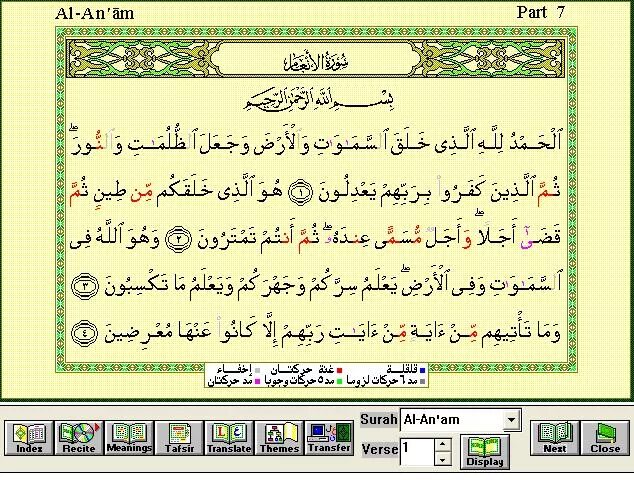 Al-An'ām Part 7
سُورَةُ الأَنْعَامِ
بِسْمِ اللَّهِ الرَّحْمَٰنِ الرَّحِيمِ
ٱلْحَمْدُ لِلَّهِ ٱلَّذِى خَلَقَ ٱلسَّمَٰوَٰتِ وَٱلْأَرْضَ وَجَعَلَ ٱلظُّلُمَٰتِ وَٱلنُّورَۖ
ثُمَّ ٱلَّذِينَ كَفَرُوا۟ بِرَبِّهِمْ يَعْدِلُونَ ١ هُوَ ٱلَّذِى خَلَقَكُم مِّن طِينٍ ثُمَّ
قَضَىٰٓ أَجَلًاۖ وَأَجَلٌ مُّسَمًّى عِندَهُۥۖ ثُمَّ أَنتُمْ تَمْتَرُونَ ٢ وَهُوَ ٱللَّهُ فِى
ٱلسَّمَٰوَٰتِ وَفِى ٱلْأَرْضِۖ يَعْلَمُ سِرَّكُمْ وَجَهْرَكُمْ وَيَعْلَمُ مَا تَكْسِبُونَ ٣
وَمَا تَأْتِيهِم مِّنْ ءَايَةٍ مِّنْ ءَايَٰتِ رَبِّهِمْ إِلَّا كَانُوا۟ عَنْهَا مُعْرِضِينَ ٤
قلقلة غنة حركتان إخفاء
مد ٦ حركات لزوما مد ٥ حركات وجوبا مد حركتان
Surah Al-An'am
Verse 1
Index Recite Meanings Tafsir Translate Themes Transfer Display Next Close